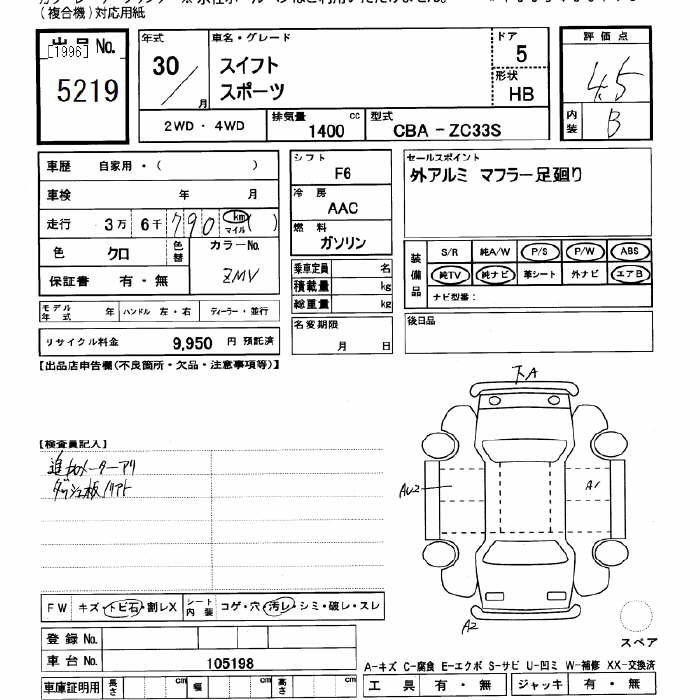 (複合機)対応用紙
出品 No.
[1996]
5219
年式
30
月
車名・グレード
スイフト
スポーツ
ドア
5
形状
HB
2WD・4WD
排気量
1400
cc
型式
CBA - ZC33S
評価点
4.5
内装
B
車歴 自家用・( )
車検 年 月
走行 3万 6千 790 km マイル ( )
色 クロ 色替 カラーNo.
ZMV
保証書 有・無
モデル年式 年 ハンドル 左・右 ディーラー・並行
リサイクル料金 9,950 円 預託済
シフト
F6
冷房
AAC
燃料
ガソリン
乗車定員 名
積載量 kg
総重量 kg
名変期限
月 日
セールスポイント
外アルミ マフラー足廻り
装備品
S/R 純A/W P/S P/W ABS
純TV 純ナビ 革シート 外ナビ エアB
ナビ型番:
後日品
【出品店申告欄(不良箇所・欠品・注意事項等)】
【検査員記入】
追加メーターアリ
ダッシュ板ソリアト
下A
AU2
A1
A2
スペア
FW キズ・トビ石・割レX シート内装 コゲ・穴・汚レ・シミ・破レ・スレ
登録 No.
車台 No. 105198
車庫証明用 長さ cm 幅 cm 高さ cm
A-キズ C-腐食 E-エクボ S-サビ U-凹ミ W-補修 XX-交換済
工具 有・無 ジャッキ 有・無